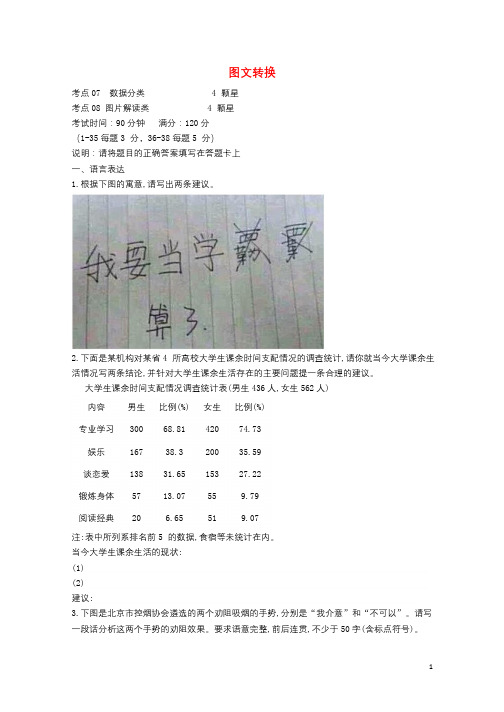 图文转换
考点07 数据分类 4 颗星
考点08 图片解读类 4 颗星
考试时间：90分钟 满分：120分
（1-35每题3 分，36-38每题5 分）
说明：请将题目的正确答案填写在答题卡上
一、语言表达
1.根据下图的寓意,请写出两条建议。
我要当学
算了.
2.下面是某机构对某省4 所高校大学生课余时间支配情况的调查统计,请你就当今大学课余生
活情况写两条结论,并针对大学生课余生活存在的主要问题提一条合理的建议。
大学生课余时间支配情况调查统计表(男生436人,女生562人)
内容 男生 比例(%) 女生 比例(%)
专业学习 300 68.81 420 74.73
娱乐 167 38.3 200 35.59
谈恋爱 138 31.65 153 27.22
锻炼身体 57 13.07 55 9.79
阅读经典 20 6.65 51 9.07
注:表中所列系排名前5 的数据,食宿等未统计在内。
当今大学生课余生活的现状:
(1)
(2)
建议:
3.下图是北京市控烟协会遴选的两个劝阻吸烟的手势,分别是“我介意”和“不可以”。请写
一段话分析这两个手势的劝阻效果。要求语意完整,前后连贯,不少于50字(含标点符号)。
1